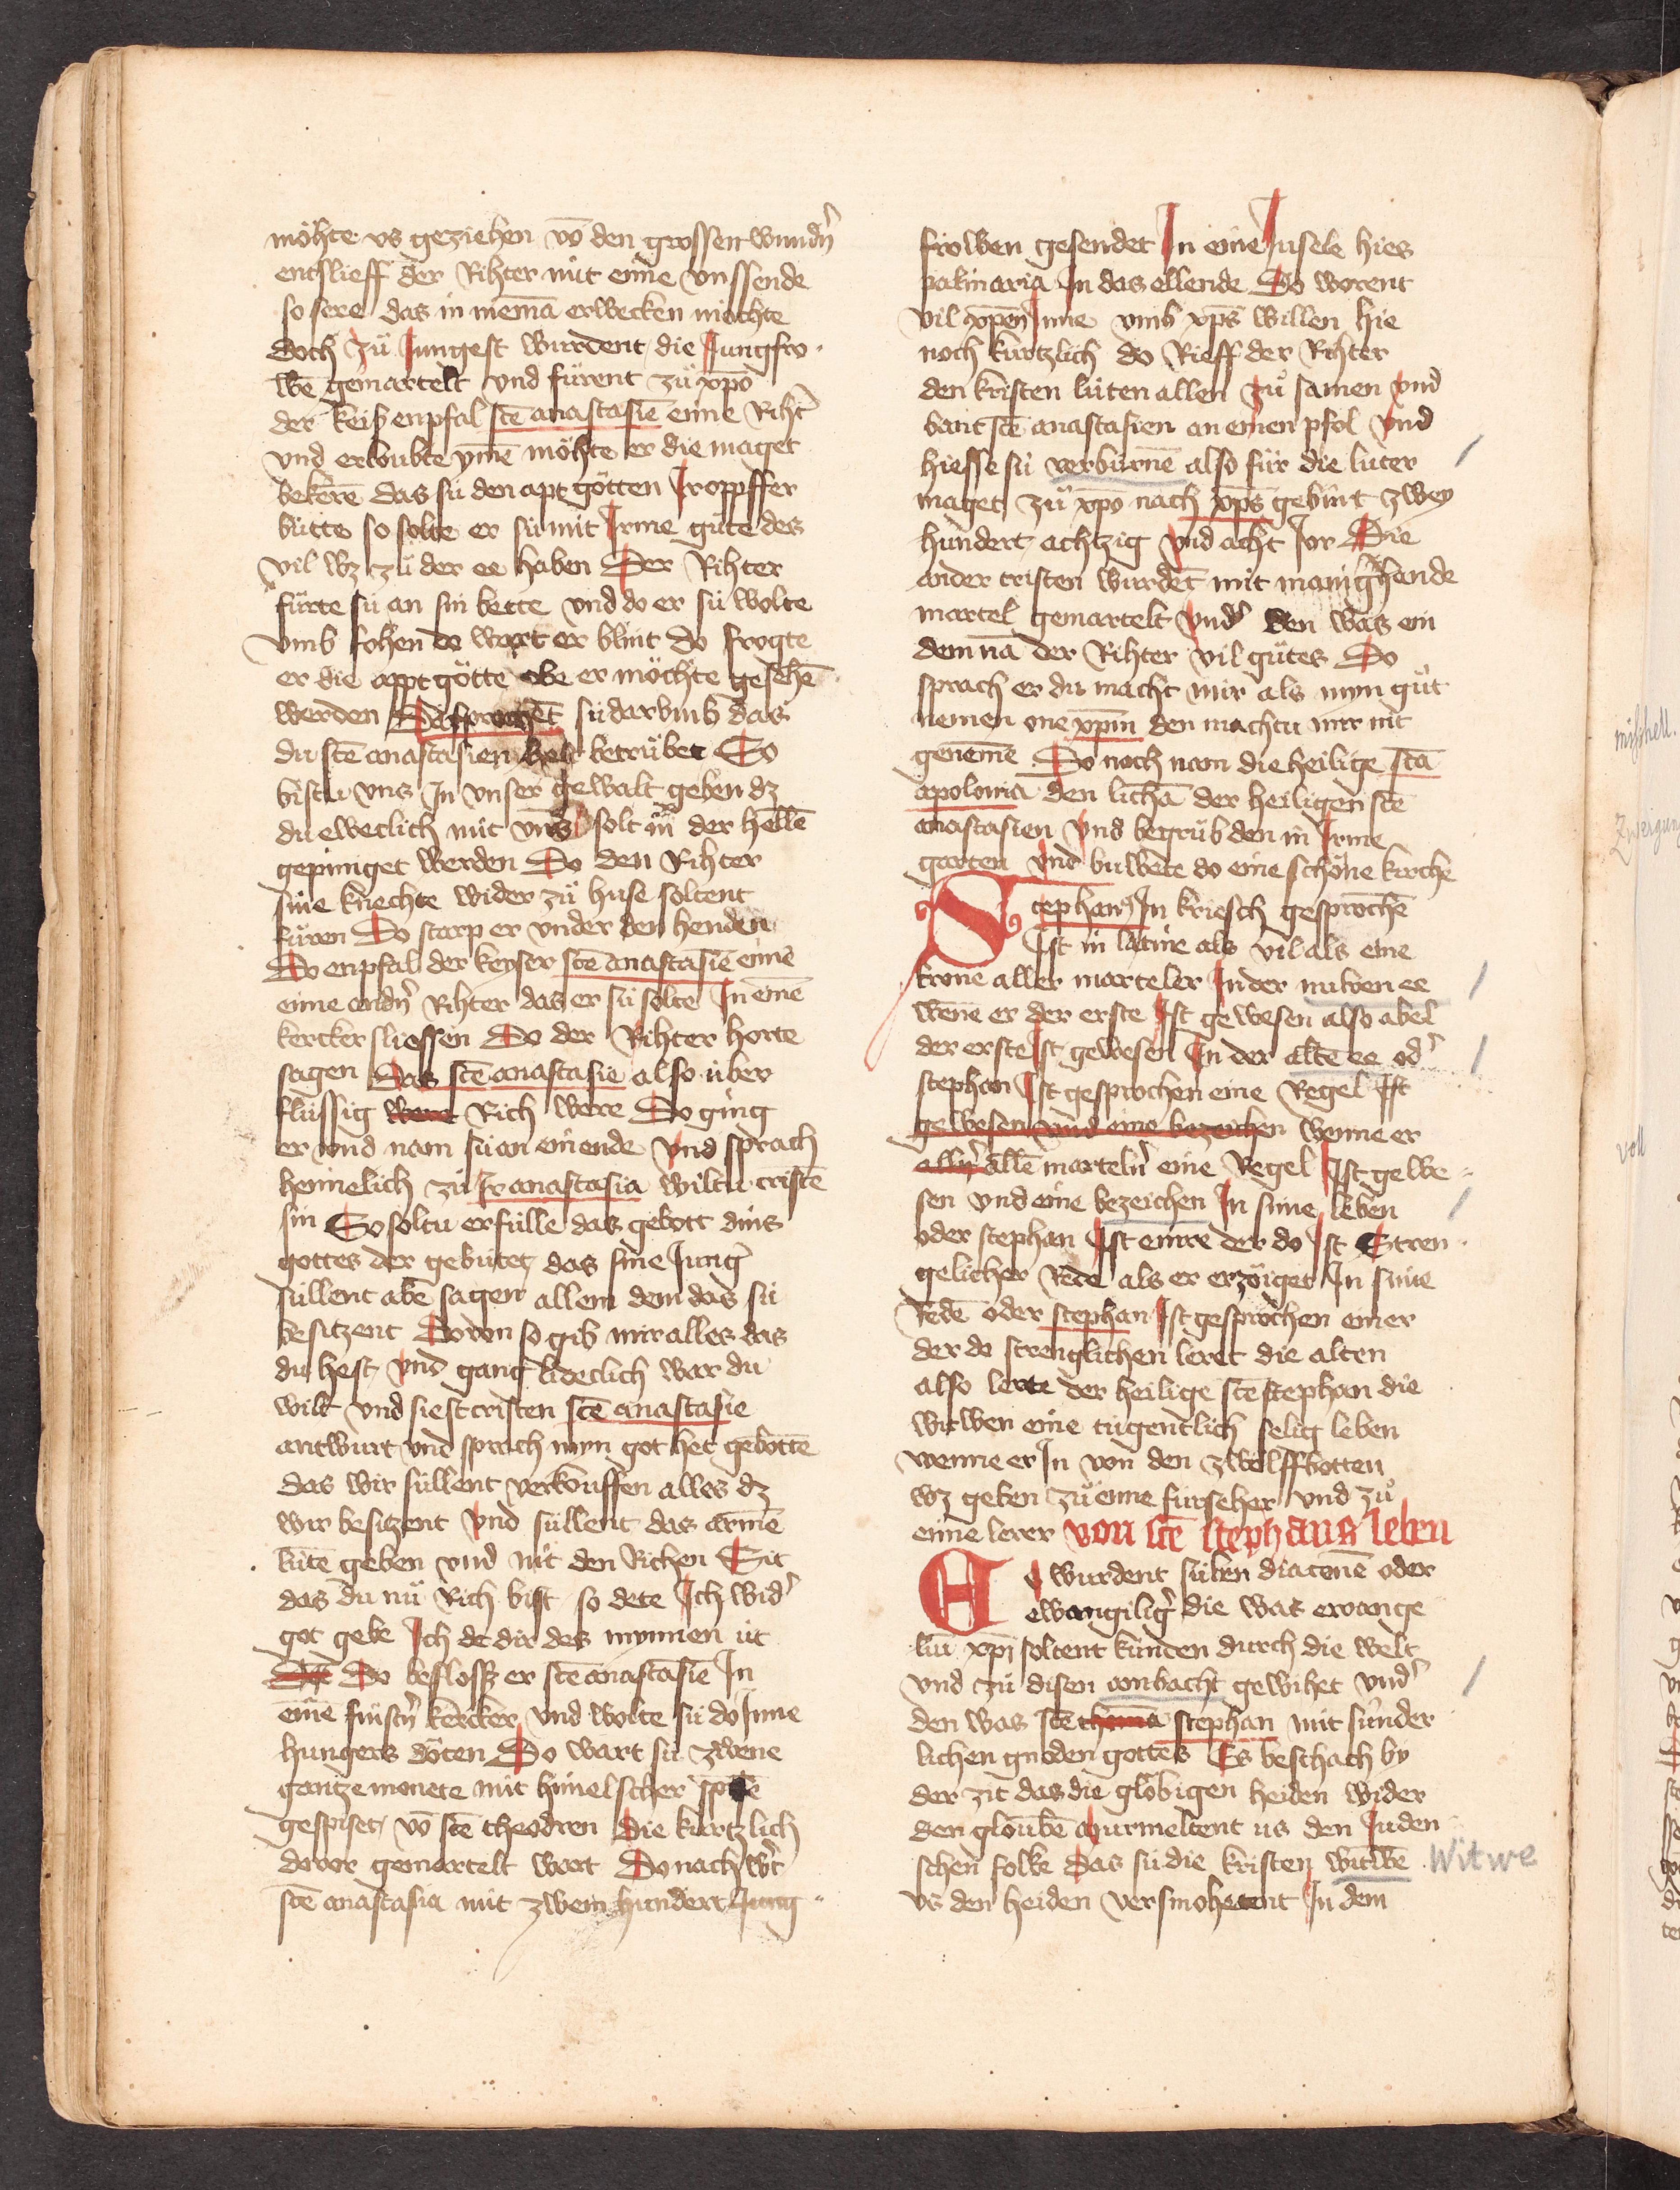 möhte vs geziehen vō den grossen wundn̄
entslieff der Rihter mit eime vnssende
so sere das in niemā erwecken mochte
doch zů Jungest wurdent die Jungfro
wē gemartelt vnd fürent zů xp̄o
der keiß enpfal stē anastasiē eime Riht̄
vnd erloubte yme möhte er die maget
bekerē das sü den apt götten Ir oppffer
bütte so solte er sü mit Irme gůte des
vil wz zů der ee haben Der Rihter
fürte sü an sin bette vnd do er sü wolte
vmb fohen do wart er blint do frogte
er die appt götte obe er möchte gesehē
werden Do sprochēt sü darvmb das
du stē anastasien hest betrübet So
bistu vns In vnser gewalt geben dz
du eweclich mit vns solt in der hellē
gepiniget werden Do den Rihter
sine knechte wider zů huse soltent
füren Do starp er vnder den henden
Do enpfal der keyser stē anastasiē eime
eime andn̄ Rihter das er sü solte In einē
kercker sliessen Do der Rihter horte
sagen Das stē anastasie also über
flüssig were Rich were Do ging
er vnd nam sü an ein ende vnd sprach
heimelich zů Ir anastasia wiltu cristē
sin So soltu erfülle das gebott dins
gottes der gebütet das sine Junḡ
süllent abe sagen allem dem das sü
besitzent Dovon so gib mir alles das
du hest vnd gang liderlich war du
wilt vnd siest cristen stē anastasie
antwurt vnd sprach myn got het gebottē
das wir süllent verkouffen alles dz
wir besitzent vnd süllent das armē
lütē geben vnd nit den Richen Sit
das du nů Rich bist so dete Ich wid̄
got gebe Ich dir des mynnen üt
Do beslosß er stē anastasiē In
eime finstn̄ kercker vnd wolte sü do Inne
hungers döten Do wart sü zwene
gantze monete mit himelscher spise
gespiset vō stē theodren die kurtzlich
dovor gemartelt wart Donach wt̄
stē anastasia mit zwein hundert Jung
frowen gesendet In eine Insele hies
palmaria In das ellende Do worent
vil xp̄en Inne vmb xp̄s willen hie
noch kurtzlich do Rieff der Rihter
den kristen lüten allen zů samen vnd
bant stē anastasien an einen pfol vnd
hiesse sü verbürnē also für die luter
maget zů xp̄o nach xp̄s gebürt zwey
hundert achtzig vnd acht Jor Die
ander cristen wurdēt mit manigerhande
martel gemartelt vnd̄ den was ein
dem nā der Rihter vil gůtes Do
sprach er du macht mir als myn gůt
nemen one xp̄m den machtu mir nit
genemē Do noch nam die heilige stā
apolonia den lichā der heiligen stē
anastasien vnd begrůb den in Irme
garten vnd buwete do eine schöne kirche
Stephan In kriesch gesprochē
Ist in latine als vil als eine
krone aller marteler In der nuwen ee
wene er der erste Ist gewesen also abel
der erste Ist gewesen In der altē ee od̄
stephan Ist gesprochen eine Regel Ist
gewesen vnd eine bezeichen wenne er
alln̄ allē marteln̄ eine Regel Ist gewe
sen vnd eine bezeichen In sime leben
oder stephan Ist eimre der do Ist Stren
gelicher Rede als er erzöiget In sine
Redē oder stephan Ist gesprochen einer
der do strenglichen leret die alten
also lerte der heilige stē stephan die
witwen eine tugentlich selig leben
wenne er In von den zwölffbotten
wz geben zů eime fürseher vnd zů
eime lerer von stē stephans leben
Es wurdent süben diaconē oder
ewangiliḡ die was ewange
liū xp̄i soltent künden durch die welt
vnd zů disen ambacht gewihet vnd̄
den was stē thoma stephan mit sunder
lichen gnoden gottes Es beschach by
der zit das die glöbigen heiden wider
den gloubē murmeltent us den Juden
schen folke das sü die kristen witwē
vs den heiden versmohetent In dem
Witwe